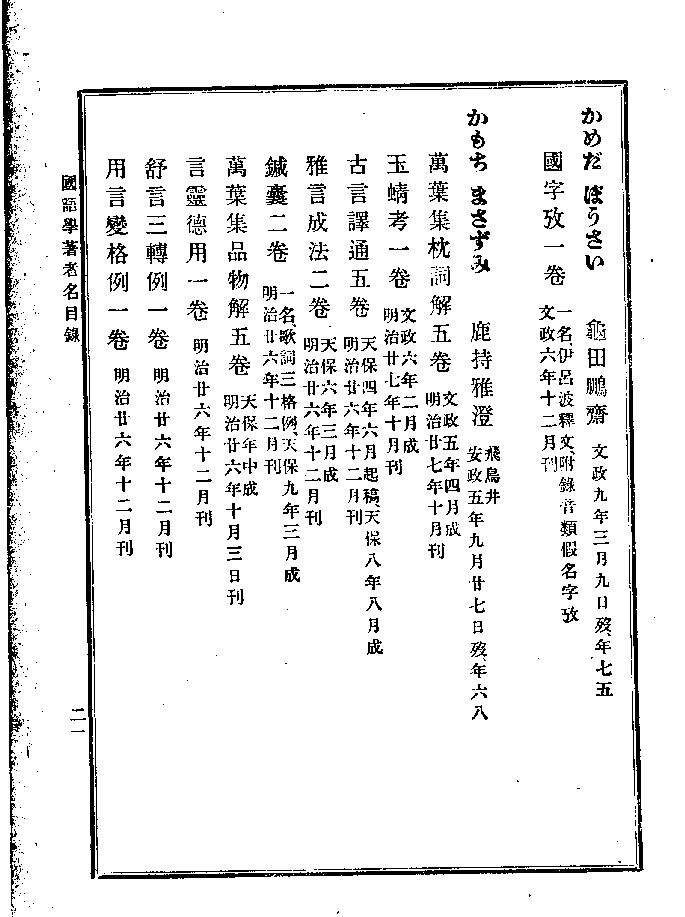 かめだ ぼうさい 龜田鵬齋 文政九年三月九日歿、年七五
國字攷一卷 一名、伊呂波釋文、附錄音類假名字攷
文政六年十二月刊
かもち まさずみ 鹿持雅澄 飛鳥井
安政五年九月廿七日歿、年六八
萬葉集枕詞解五卷 文政五年四月成
明治廿七年十月刊
玉蜻考一卷 文政六年二月成
明治廿七年十月刊
古言譯通五卷 天保四年六月起稿、天保八年八月成
明治廿六年十二月刊
雅言成法二卷 天保六年三月成
明治廿六年十二月刊
鍼囊二卷 一名、歌詞三格例、天保九年三月成
明治廿六年十二月刊
萬葉集品物解五卷 天保年中成
明治廿六年十月三日刊
言靈德用一卷 明治廿六年十二月刊
舒言三轉例一卷 明治廿六年十二月刊
用言變格例一卷 明治廿六年十二月刊
國語學著者名目錄
二一